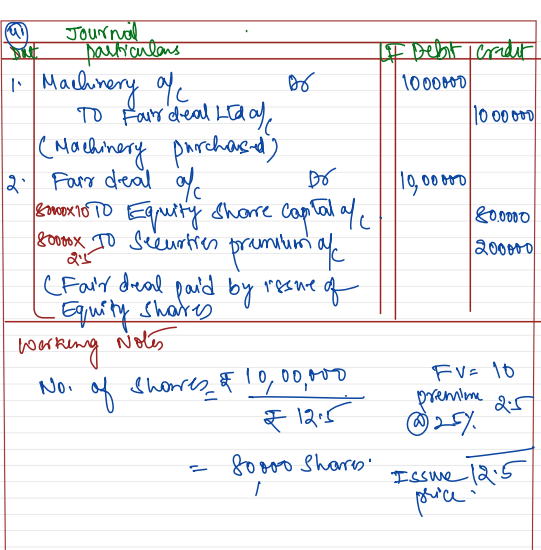 41
Journal
Date Particulars LF Debt Credit
1. Machinery a/c Dr 1000000
TO Fair deal Ltd a/c 1000000
(Machinery purchased)
2. Fair deal a/c Dr 10,00,000
80000x10 TO Equity Share Capital a/c 800000
80000x 2.5 TO Securities premium a/c 200000
(Fair deal paid by issue of
Equity shares
Working Notes
No. of shares = ₹ 10,00,000
₹ 12.5
= 80000 shares.
FV = 10
premium 2.5
@ 25%
Issue 12.5
price.